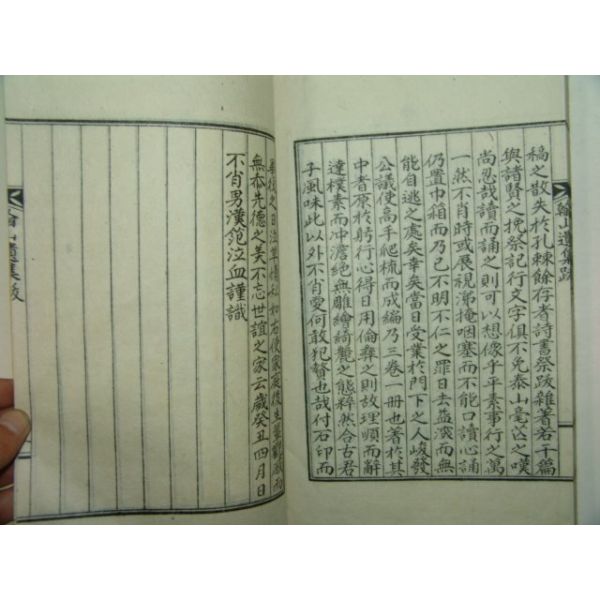 稿之散失於孔棘餘存者詩書祭跋雜著若干篇
與諸賢之挽祭記行文字俱不免泰山毫芒之嘆
尚忍哉讀而誦之則可以想像乎平素事行之萬
一然不肖時或展視涕掩咽塞而不能口讀心誦
仍置巾箱而乃已不明不仁之罪日去益深而無
能自逃之處矣幸矣當日受業於門下之人峻發
公議使高手爬梳而成編乃三卷一冊也著於其
中者原於躬行心得日用倫彝之則故理順而辭
達樸素而冲澹絕無雕繪綺麗之態粹然合古君
子風味此以外不肖爰何敢犯贅也哉付石印而
之日泣草
無忝先德之美不忘世誼之家云歲癸丑四月日
不肖男漢範泣血謹識
山遺集跋
山遺集跋